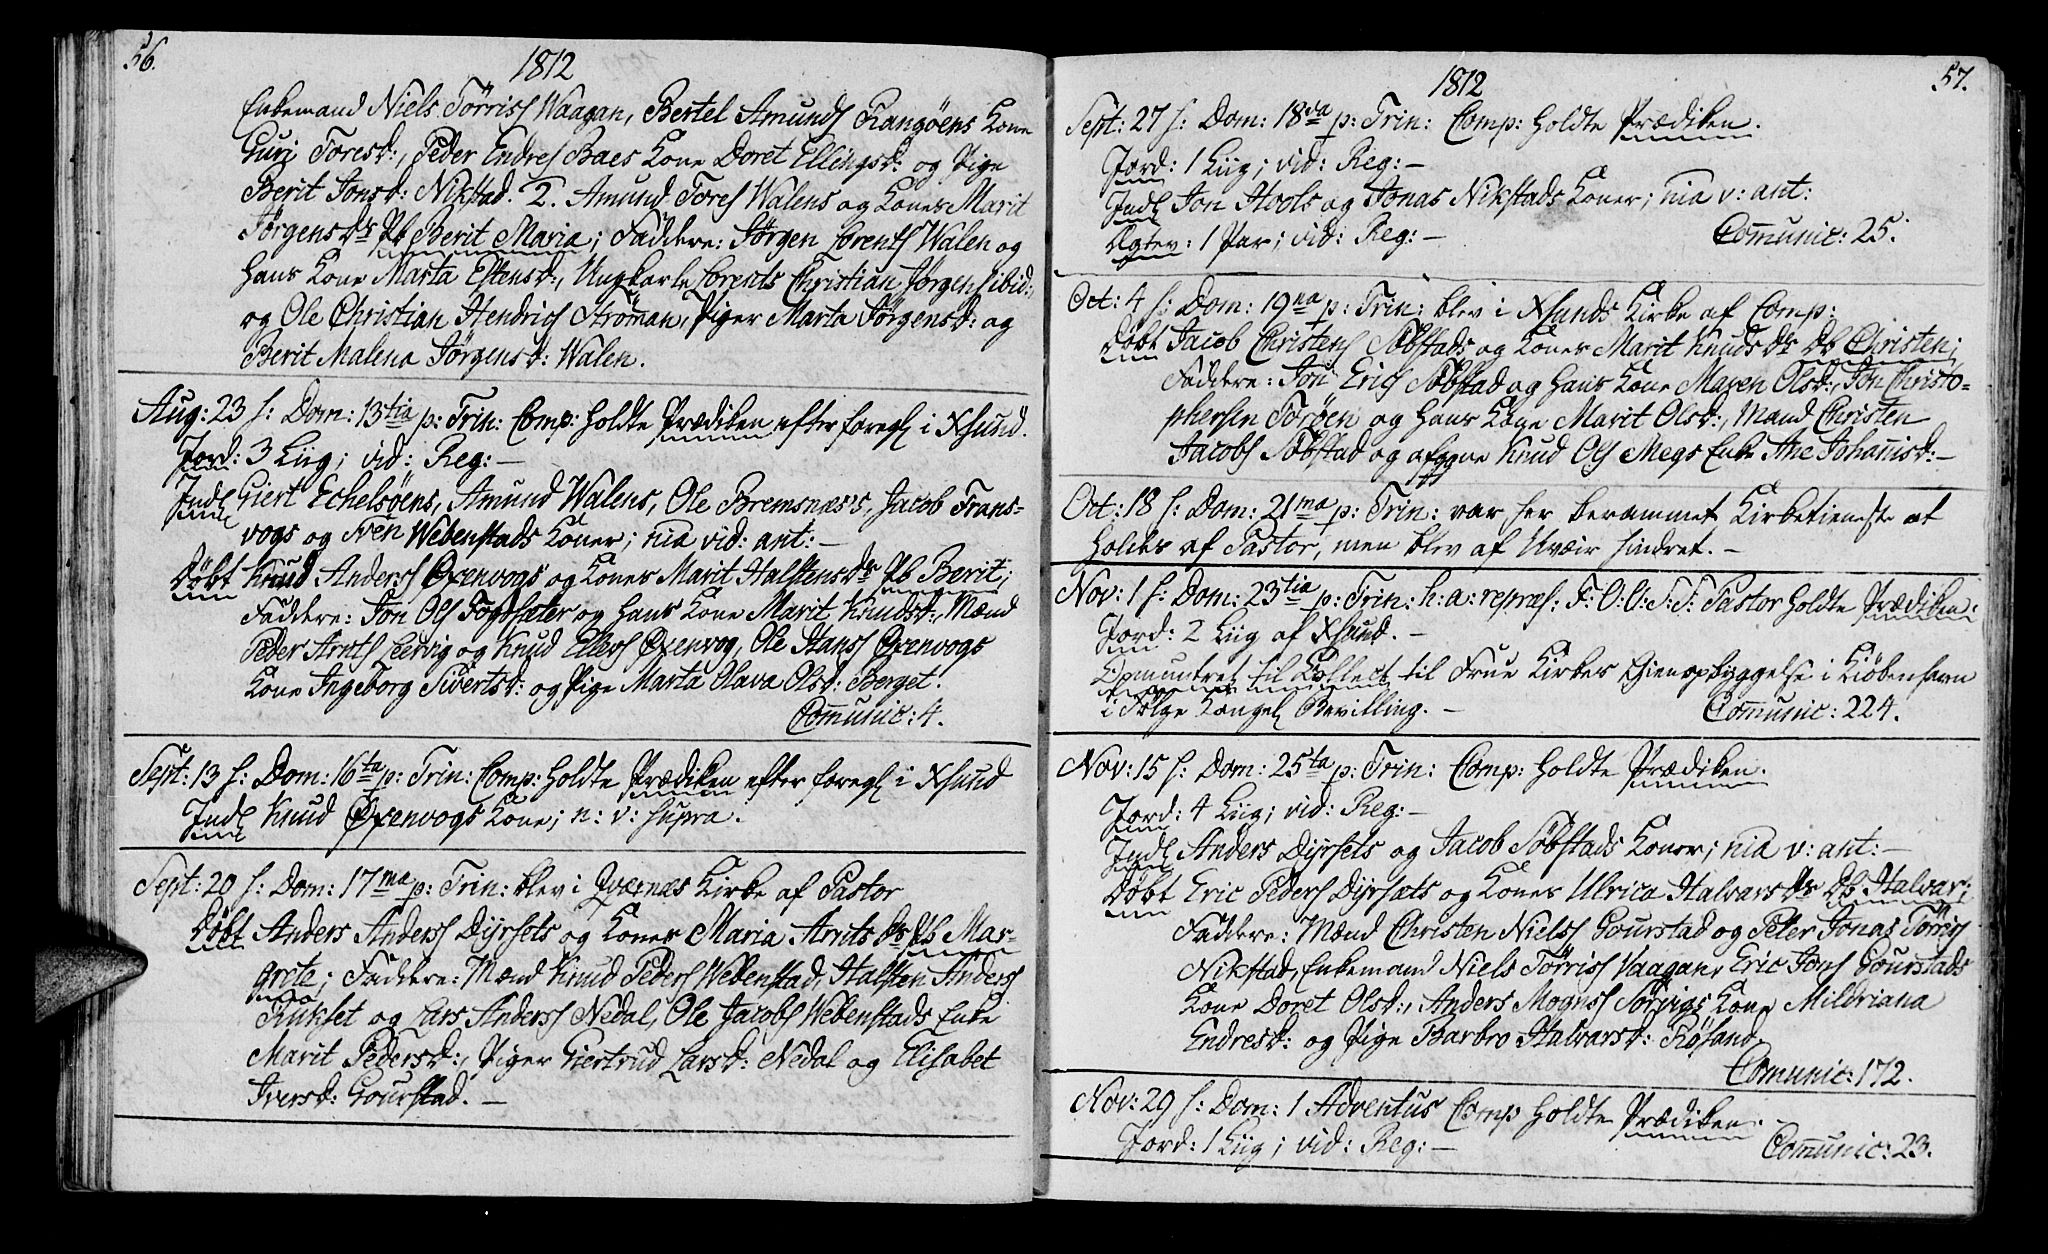 56.
1812
Enkemand Niels Törriss Waagan, Bertel Amunds Rangöens Kone
Guri Toresd:, Peder Endres Baes Kone Doret Ellingsd: og Pige
Berit Jonsd: Nikstad. 2. Amund Tores Walens og Kones Marit
Jörgensdr Pb Berit Maria; Faddere: Jörgen Lorents Walen og
hans Kone Marta Estensd:, Ungkarle Lorents Christian Jörgens ibid:,
og Ole Christian Hendrichs Ströman, Piger Marta Jörgensd: og
Berit Malena Jörgensd: Walen.
Aug: 23 s: Dom: 13tia p: Trin: Comp: holdte Prædiken efter foregl i Xsund.
Jord: 3 Liig; vid: Reg: —
Indl Giert Echelsöens, Amund Walens, Ole Bremsnæs's, Jacob Frans-
vogs og Sven Webenstads Koner; nia vid: ant: —
Döbt Knud Anderss Öxenvogs og Kones Marit Halstensdr Pb Berit;
Faddere: Jon Ols Fogsæter og hans Kone Marit Knudsd:, Mænd
Peder Arnts Leervig og Knud Ellefs Öxenvog, Ole Hanss Öxenvogs
Kone Ingeborg Sivertsd: og Pige Marta Olava Olsd: Berget.
Com̄unic: 4.
Sept: 13 s: Dom: 16ta p: Trin: Comp: holdte Prædiken efter foregl i Xsund
Indl Knud Öxenvogs Kone; n: v: supra.
Sept: 20 s: Dom: 17ma p: Trin: blev i Qværnæs Kirke af Pastor
Döbt Anders Anderss Dyrsets og Kones Maria Arntsdr Pb Mar-
grete; Faddere: Mænd Knud Peders Webenstad, Halsten Anderss
Rukset og Lars Anderss Nedal, Ole Jacobs Webenstads Enke
Marit Pedersd:, Piger Giertrud Larsd: Nedal og Elisabet
Iversd: Gourstad. —
57.
1812
Sept: 27 s: Dom: 18va p: Trin: Comp: holdte Prædiken.
Jord: 1 Liig; vid: Reg: —
Indl Jon Hools og Jonas Nikstads Koner; nia v: ant:
Ægtev: 1 Par; vid: Reg: —
Com̄unic: 25.
Oct: 4 s: Dom: 19na p: Trin: blev i Xsunds Kirke af Comp:
Döbt Jacob Christens Söbstads og Kones Marit Knudsdr Db Christen;
Faddere: Jon Erics Söbstad og hans Kone Maren Olsd:, Jon Christo-
phersen Toröen og hans Kone Marit Olsd:, Mand Christen
Jacobs Söbstad og afggne Knud Ols Megs Enke Ane Johanisd: —
Oct: 18 s: Dom: 21ma p: Trin: var her berammet Kirketieneste at
holdes af Pastor, men blev af Uveir hindret. —
Nov: 1 s: Dom: 23tia p: Trin: h: a: repræs: F: O: O: S: F: Pastor holdte Prædiken:
Jord: 2 Liig af Xsund. —
Opmuntret til Collect til Frue Kirkes Gienopbyggelse i Kiöbenhavn
i Fölge Kongel Bevilling. —
Com̄unic: 224.
Nov: 15 s: Dom: 25ta p: Trin: Comp: holdte Prædiken.
Jord: 4 Liig; vid: Reg: —
Indl Anders Dyrsets og Jacob Söbstads Koner; nia v: ant: —
Döbt Eric Peders Dyrsæts og Kones Ulrica Halvarsdr Db Halvar;
Faddere: Mænd Christen Niels Gourstad og Peter Jonas Törris
Nikstad, Enkemand Niels Törriss Vaagan, Eric Jons Gourstads
Kone Doret Olsd:, Anders Mogns Sörvigs Kone Mildriana
Endresd: og Pige Barbro Halvarsd: Rösand.
Com̄unic: 172.
Nov: 29 s: Dom: 1 Adventus Comp holdte Prædiken.
Jord: 1 Liig; vid: Reg: —
Com̄unic: 23.